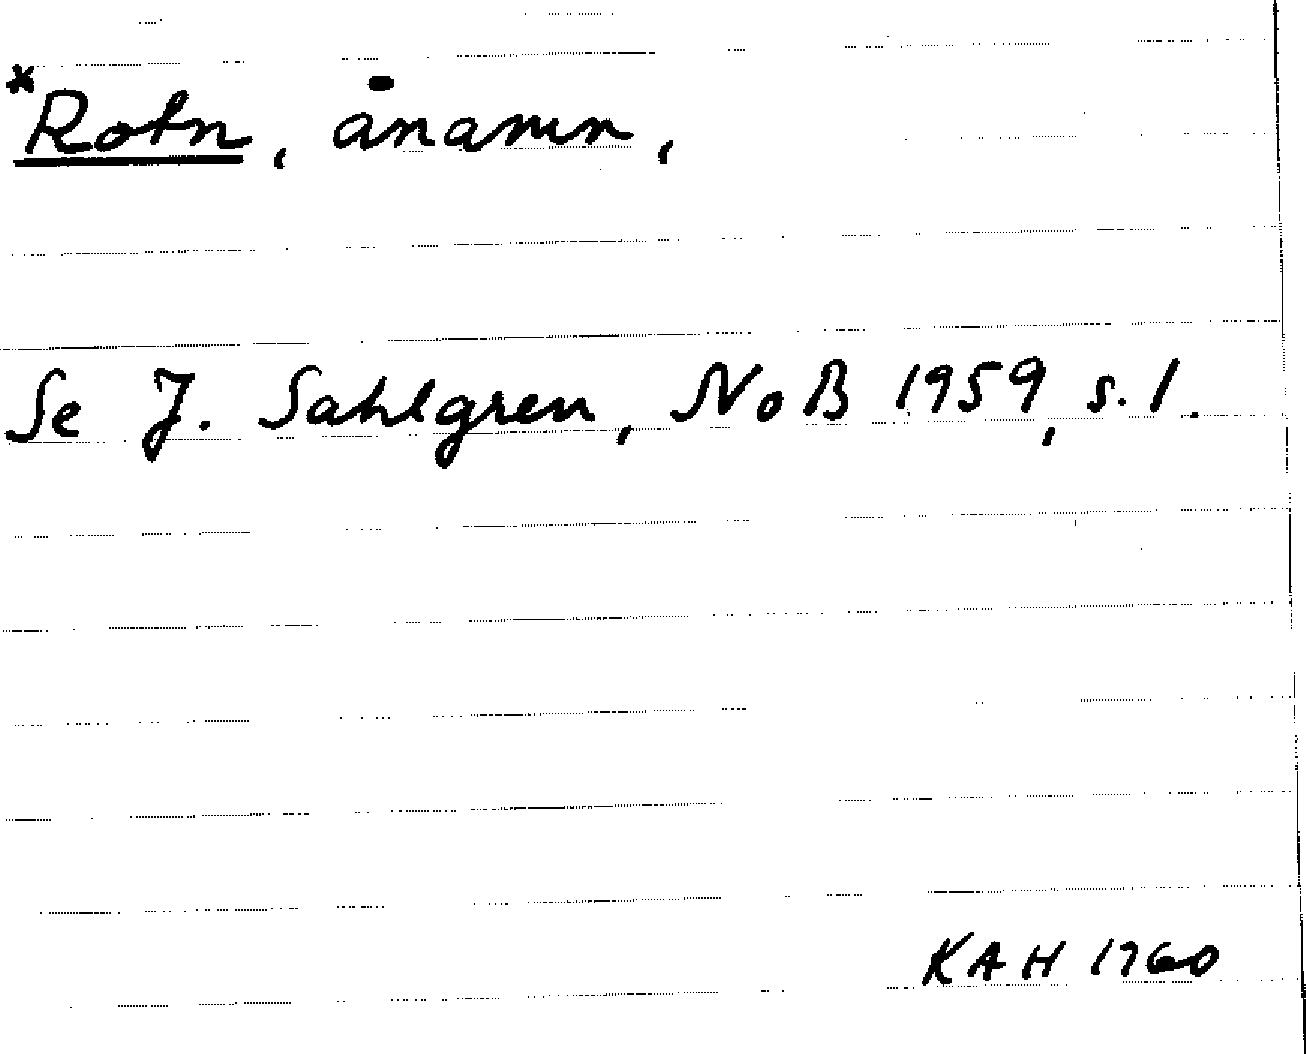 *Rotn, ånamn,
Se J. Sahlgren, NoB 1959, s. 1.
KAH 1960